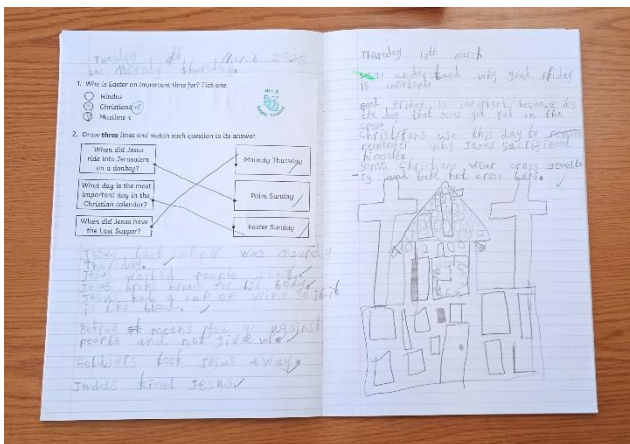 Tuesday March 2025
Lo Maundy thursday.
1. Who is Easter an important time for? Tick one.
Hindus
Christians
Muslims
2. Draw three lines and match each question to its answer.
When did Jesus ride into Jerusalem on a donkey?
What day is the most important day in the Christian calendar?
When did Jesus have the Last Supper?
Maundy Thursday
Palm Sunday
Easter Sunday
Jesus last was Maundy
Thursday.
Jesus washed people feet.
Jesus broke bread for his body.
Jesus had a cup of wine
is like blood.
Betray means you go against
people and not
Soldiers took Jesus away.
Judas kissed Jesus.
Thursday 12th march
to understand why good friday
is
good friday is because its
the day that Jesus got put on the
cross.
Christians use this day to
remember why Jesus sacrificed
himself.
Some Christians wear cross
and hot cross